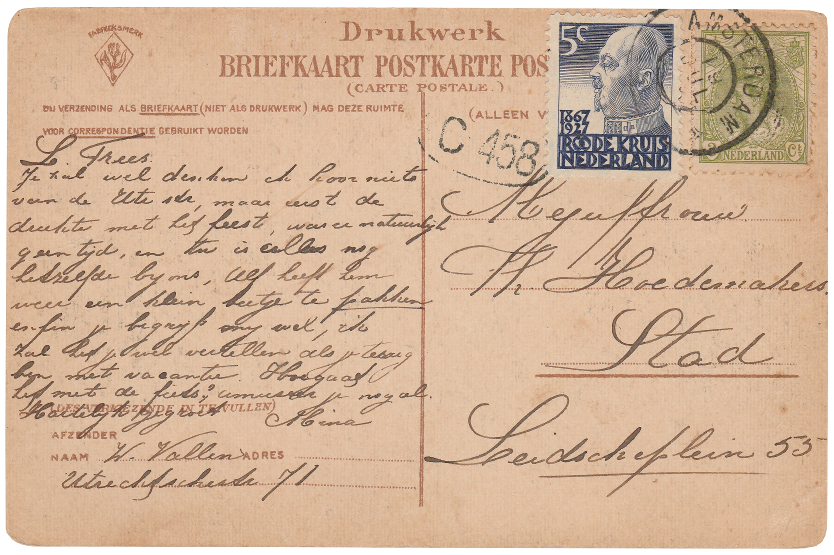 FABRIEKSMERK
Drukwerk
BRIEFKAART POSTKARTE POS
(CARTE POSTALE.)
BIJ VERZENDING ALS BRIEFKAART (NIET ALS DRUKWERK) MAG DEZE RUIMTE
(ALLEEN V
VOOR CORRESPONDENTIE GEBRUIKT WORDEN
5c
1867
1927
ROODE KRUIS
NEDERLAND
AMSTERDAM
NEDERLAND Ct
C 458
L. Trees.
Je zal wel denken ik hoor niets
van de Utr str, maar eerst de
drukte met het feest, was er natuurlijk
geen tijd, en nu is alles nog
hetzelfde by ons, Alf heeft hem
weer een klein beetje te pakken
enfin je begrijpt my wel, ik
zal het je wel vertellen als je terug
ben met vacantie. Hoe gaat
het met de fiets? amuseer je nogal.
Hartelijk gegroet Mina
(DES VERKIEZENDE IN TE VULLEN)
AFZENDER
NAAM W. Vallen ADRES
Utrechtschestr 71
Mejuffrouw
Th Hoedemakers
Stad
Leidscheplein 55